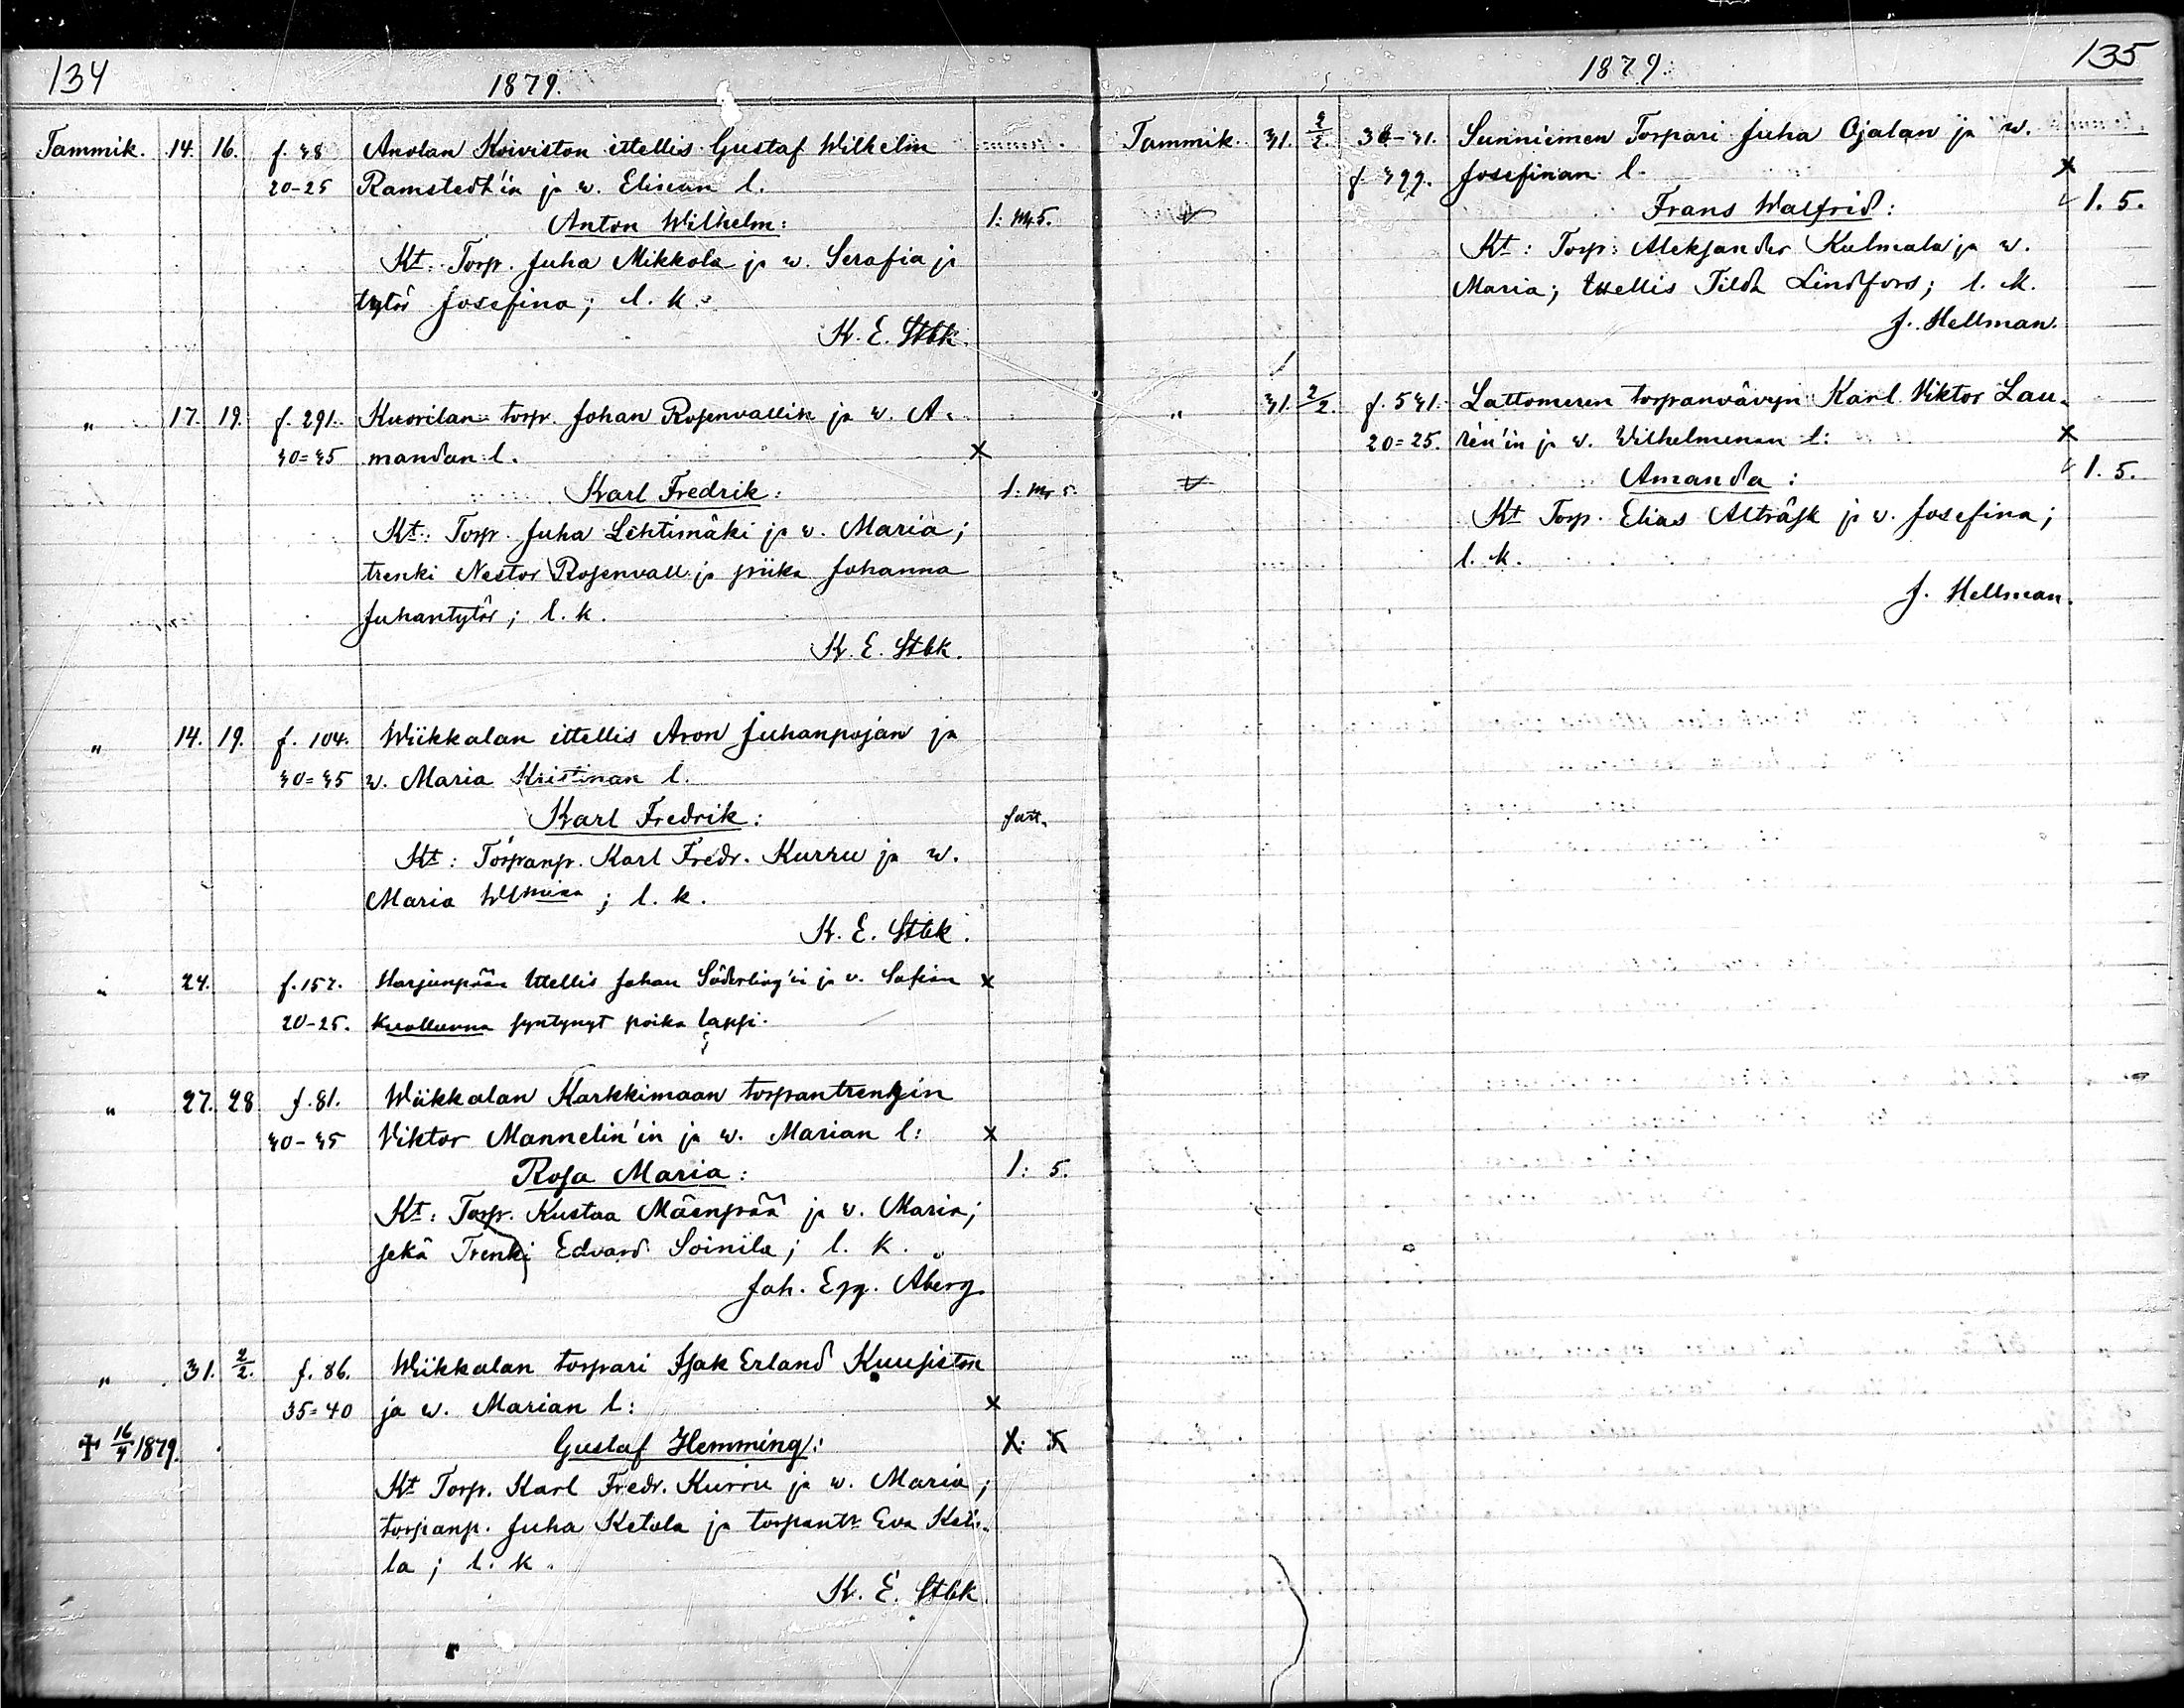 134
1879.
Tammik. 14. 16. f. 38 Anolan Koiviston ittellis Gustaf Wilhelm
20-25 Ramstedt'in ja w. Elisean l.
Anton Wilhelm: 1: my 5.
Kt: Torp. Juha Mikkola ja w. Serafia ja
tytör Josefina; l. k.
K. E. Stbk.
" 17. 19. f. 291. Kuorilan torp. Johan Rosenvallin ja w. A-
30=35 mandan l. x
Karl Fredrik: 1: my 5.
Kt: Torp. Juha Lehtimäki ja w. Maria;
trenki Nestor Rosenvall ja piika Johanna
Juhantytör; l. k.
K. E. Stbk.
" 14. 19. f. 104. Wiikkalan ittellis Aron Juhanpojan ja
30=35 w. Maria Kristinan l.
Karl Fredrik: fatt.
Kt: Torpanp. Karl Fredr. Kurru ja w.
Maria ; l. k.
K. E. Stbk.
" 24. f. 157. Harjunpään Ittellis Johan Söderling'in ja v. Sofian x
20-25. Kuolluvna syntynyt poika lapsi.
" 27. 28. f. 81. Wiikkalan Karkkimaan torpantrengin
30-35 Viktor Mannelin'in ja w. Marian l: x
Rosa Maria: 1: 5.
Kt: Torp. Kustaa Mäenpää ja v. Maria;
sekä Trenki Edvard Soinila; l. k.
Joh. Åberg
" 31. 2/2. f. 86. Wiikkalan torpari Isak Erland Kuusiston
35=40 ja w. Marian l: x
† 16/4 1879. Gustaf Hemming: 1: 5
Kt Torp. Karl Fredr. Kurru ja w. Maria;
torpanp. Juha Ketola ja torpantr Eva Keti-
la; l. k.
K. E. Stbk.
1879.
135
Tammik. 31. 2/2. 30-31. Sunniemen Torpari Juha Ojalan ja w.
f. 399. Josefinan l. x
Frans Walfrid: 1. 5.
Kt: Torp: Aleksander Kulmala ja w.
Maria; Ittellis Tilda Lindfors; l. k.
J. Hellman.
" 31. 2/2. f. 531. Lattomeren torpanvävyn Karl Viktor Lau-
20=25. rén'in ja w. Wilhelmenan l: x
Amanda: 1. 5.
Kt Torp. Elias Alträsk ja w. Josefina;
l. k.
J. Hellman.